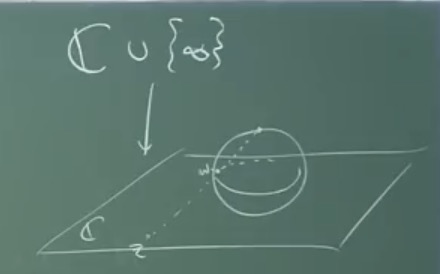 ℂ ∪ {∞}
w
ℂ
z